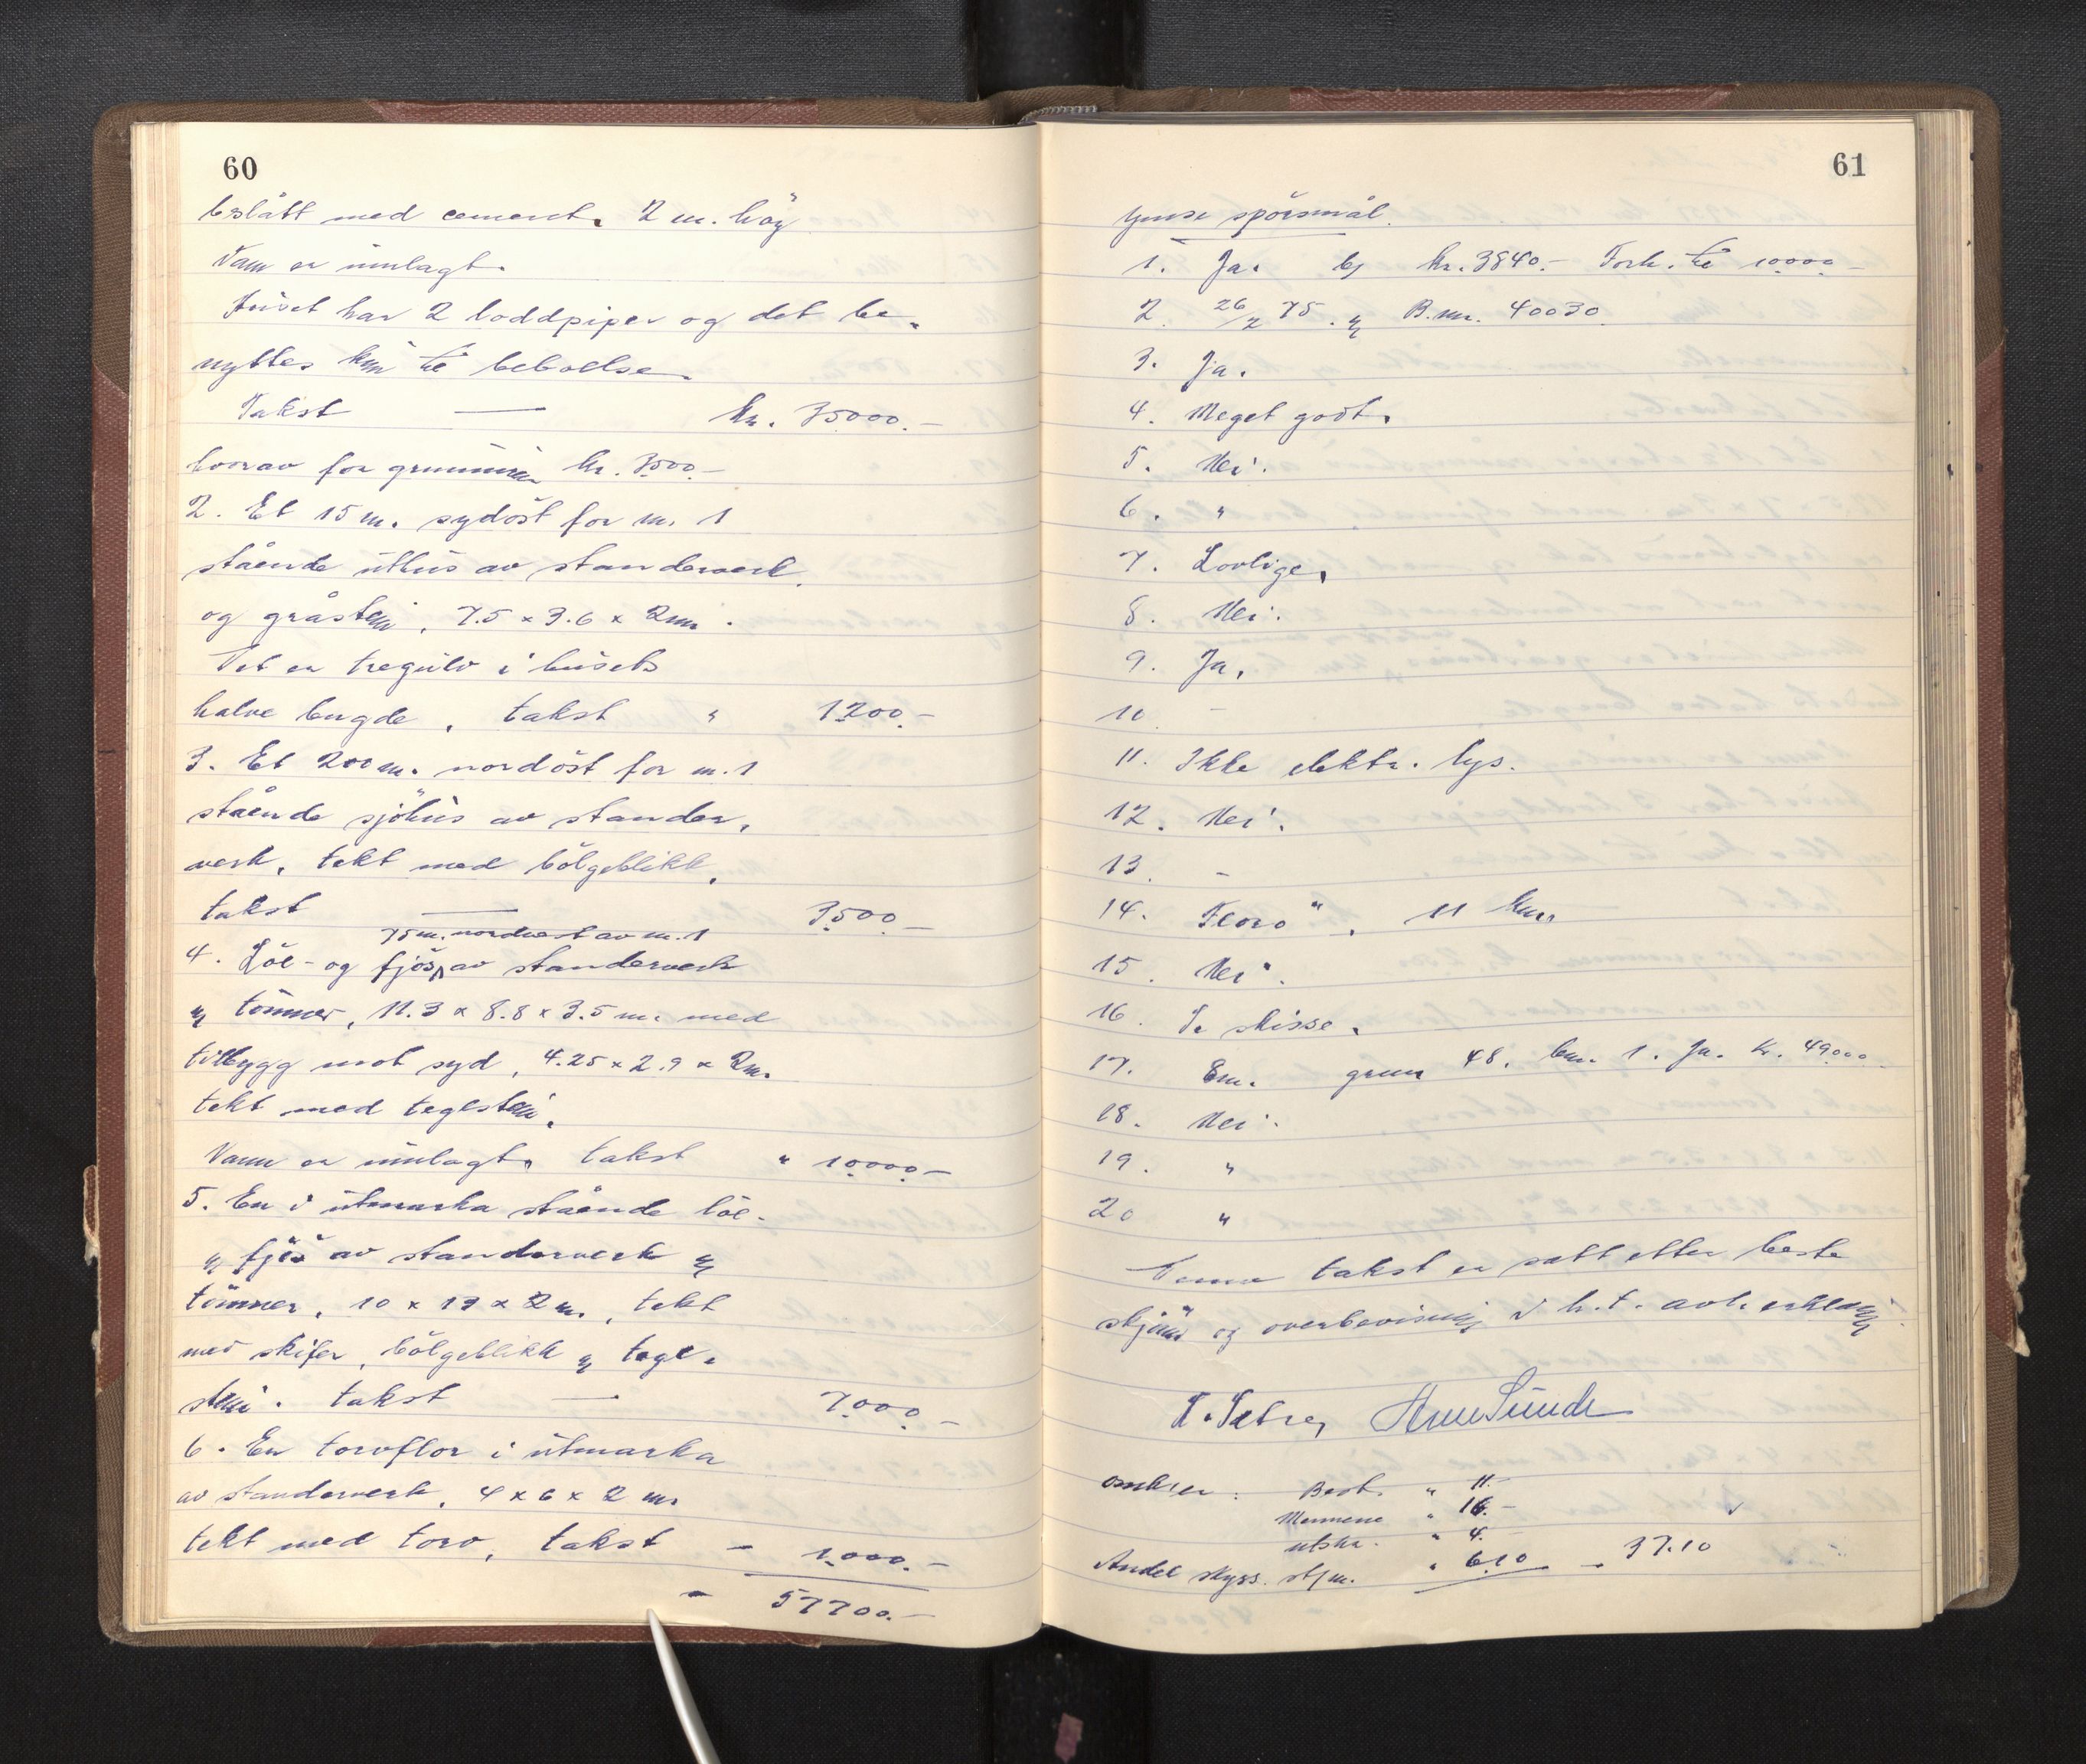 60
beslått med cement. 2 m. høy
Vann er innlagt.
Huset har 2 loddpiper og det be-
nyttes kun til beboelse.
Takst — kr. 35000.-
hvorav for grunnmur kr. 3500.-
2. Et 15 m. sydöst for nr. 1
stående uthus av standerverk
og gråstein, 7.5 x 3.6 x 2 m.
Det er tregulv i husets
halve lengde, takst " 1200.-
3. Et 200 m. nordöst for nr. 1
stående sjöhus av stander-
verk, tekt med bölgeblikk,
takst — 3500.-
75 m. nordvest av nr. 1
4. Löe- og fjös, av standerverk
og tömmer, 11.3 x 8.8 x 3.5 m. med
tilbygg mot syd, 4.25 x 2.9 x 2 m.
tekt med teglstein.
Vann er innlagt, takst " 10000.-
5. En i utmarka stående löe-
og fjös av standerverk og
tömmer, 10 x 13 x 2 m., tekt
med skifer, bölgeblikk og tegl-
stein. takst — 7000.-
6. En torvflor i utmarka
av standerverk, 4 x 6 x 2 m.
tekt med torv, takst - 1000.-
- 57700.-
61
Ymse spörsmål.
1. Ja. bj kr. 3840.- Forh. til 10000-
2. 26/2 75. og B.nr. 40030
3. Ja.
4. Meget godt.
5. Nei.
6. "
7. Lovlige.
8. Nei.
9. Ja.
10 -
11. Ikke elektr. lys.
12. Nei.
13. -
14. Florö, 11 km.
15. Nei.
16. Se skisse.
17. Em. gnr 48. bnr. 1. Ja. Kr. 49000
18. Nei.
19. "
20 "
Denne takst er satt etter beste
skjönn og overbevisning i h.t. avh. erklæring
Omk.er: Best. " 11.-
Mennene " 16.-
utskr. " 4.-
Andel skyss. st/m. " 6.10 - 37.10